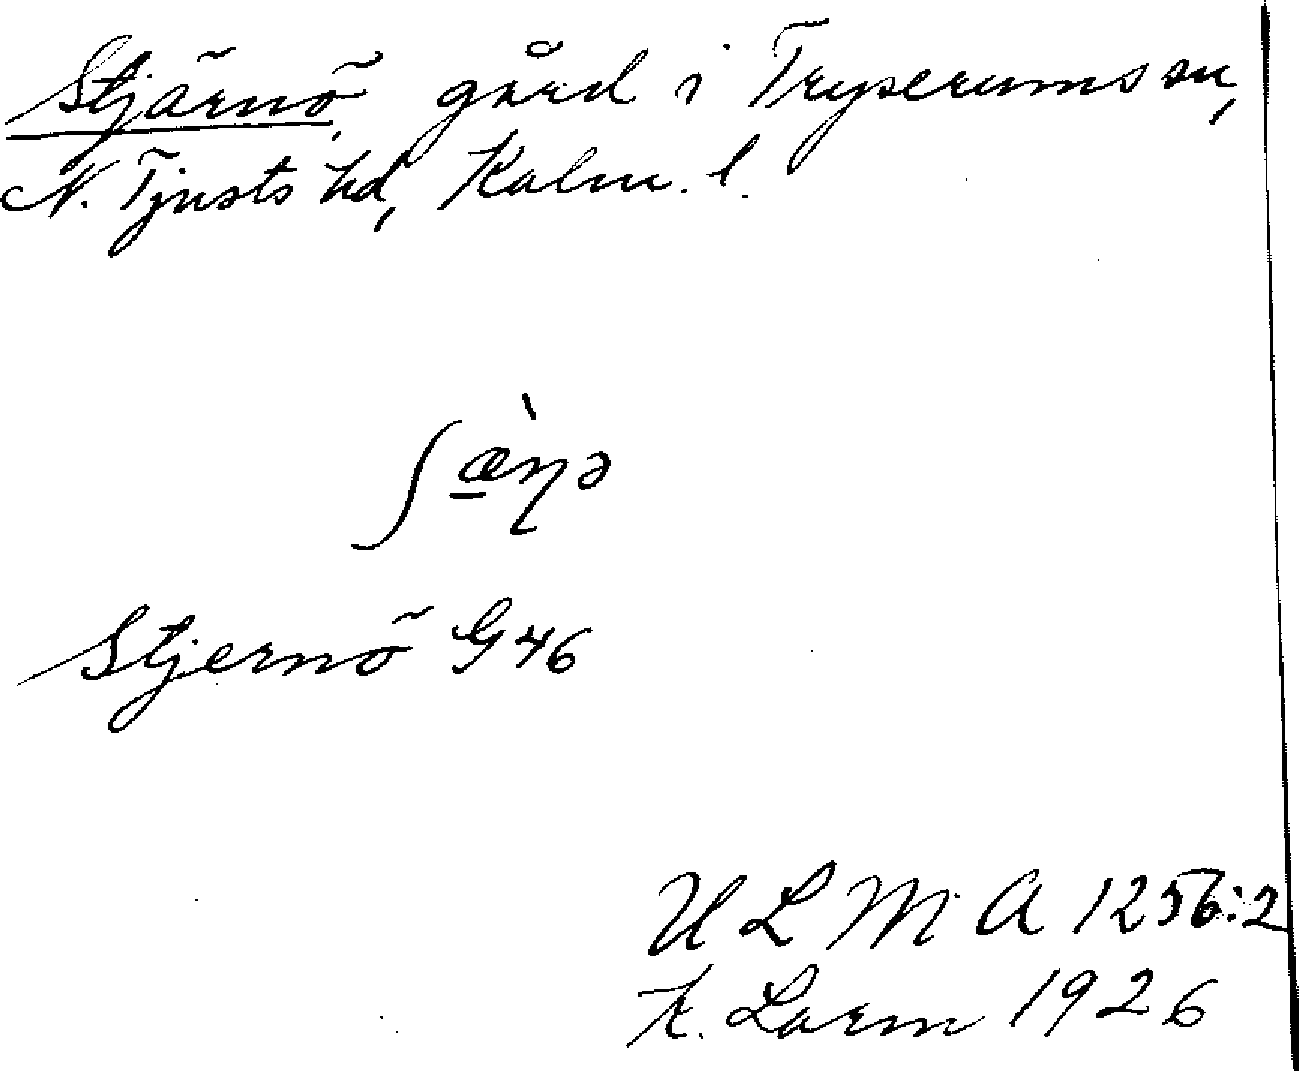 Stjärnö, gård i Tryserums sn,
N. Tjusts hd, Kalm. l.
ʃæ̀ɳə
Stjernö G 46
U L M A 1256:2
K. Larm 1926